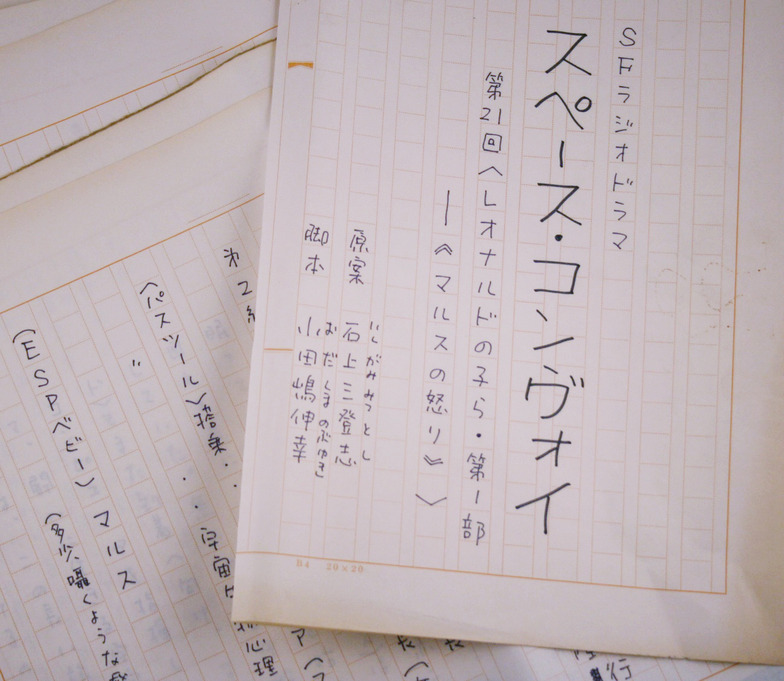 SFラジオドラマ
スペース・コンヴォイ
第21回〈レオナルドの子ら・第1部
―《マルスの怒り》〉
原案 石上三登志
いしがみみつとし
脚本 小田嶋伸幸
おだしまのぶゆき
B4 20×20
第2
〈パスツール〉搭乗・
〃
・・宇宙
心理
(ESPベビー)マルス
(多少、囁くような
行